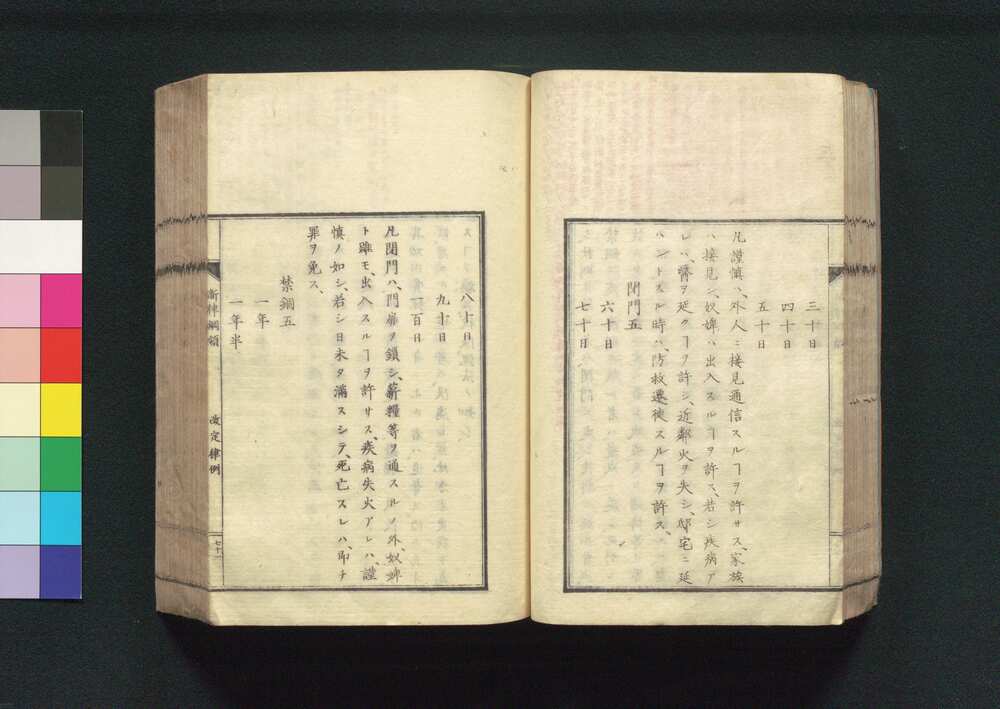 三十日
四十日
五十日
凡謹慎ハ、外人ニ接見通信スルヿヲ許サス、家族
ハ接見シ、奴婢ハ出入スルヿヲ許ス、若シ疾病ア
レハ、醫ヲ延クヿヲ許シ、近鄰火ヲ失シ、邸宅ニ延
ハントスル時ハ、防救遷徙スルヿヲ許ス、
閉門五
六十日
七十日
八十日
九十日
百日
凡閉門ハ、門扉ヲ鎖シ、薪糧等ヲ通スルノ外、奴婢
ト雖モ、出入スルヿヲ許サス、疾病失火アレハ、謹
慎ノ如シ、若シ日未タ滿スシテ、死亡スレハ、即チ
罪ヲ免ス、
禁錮五
一年
一年半
新律綱領 改定律例
七十一